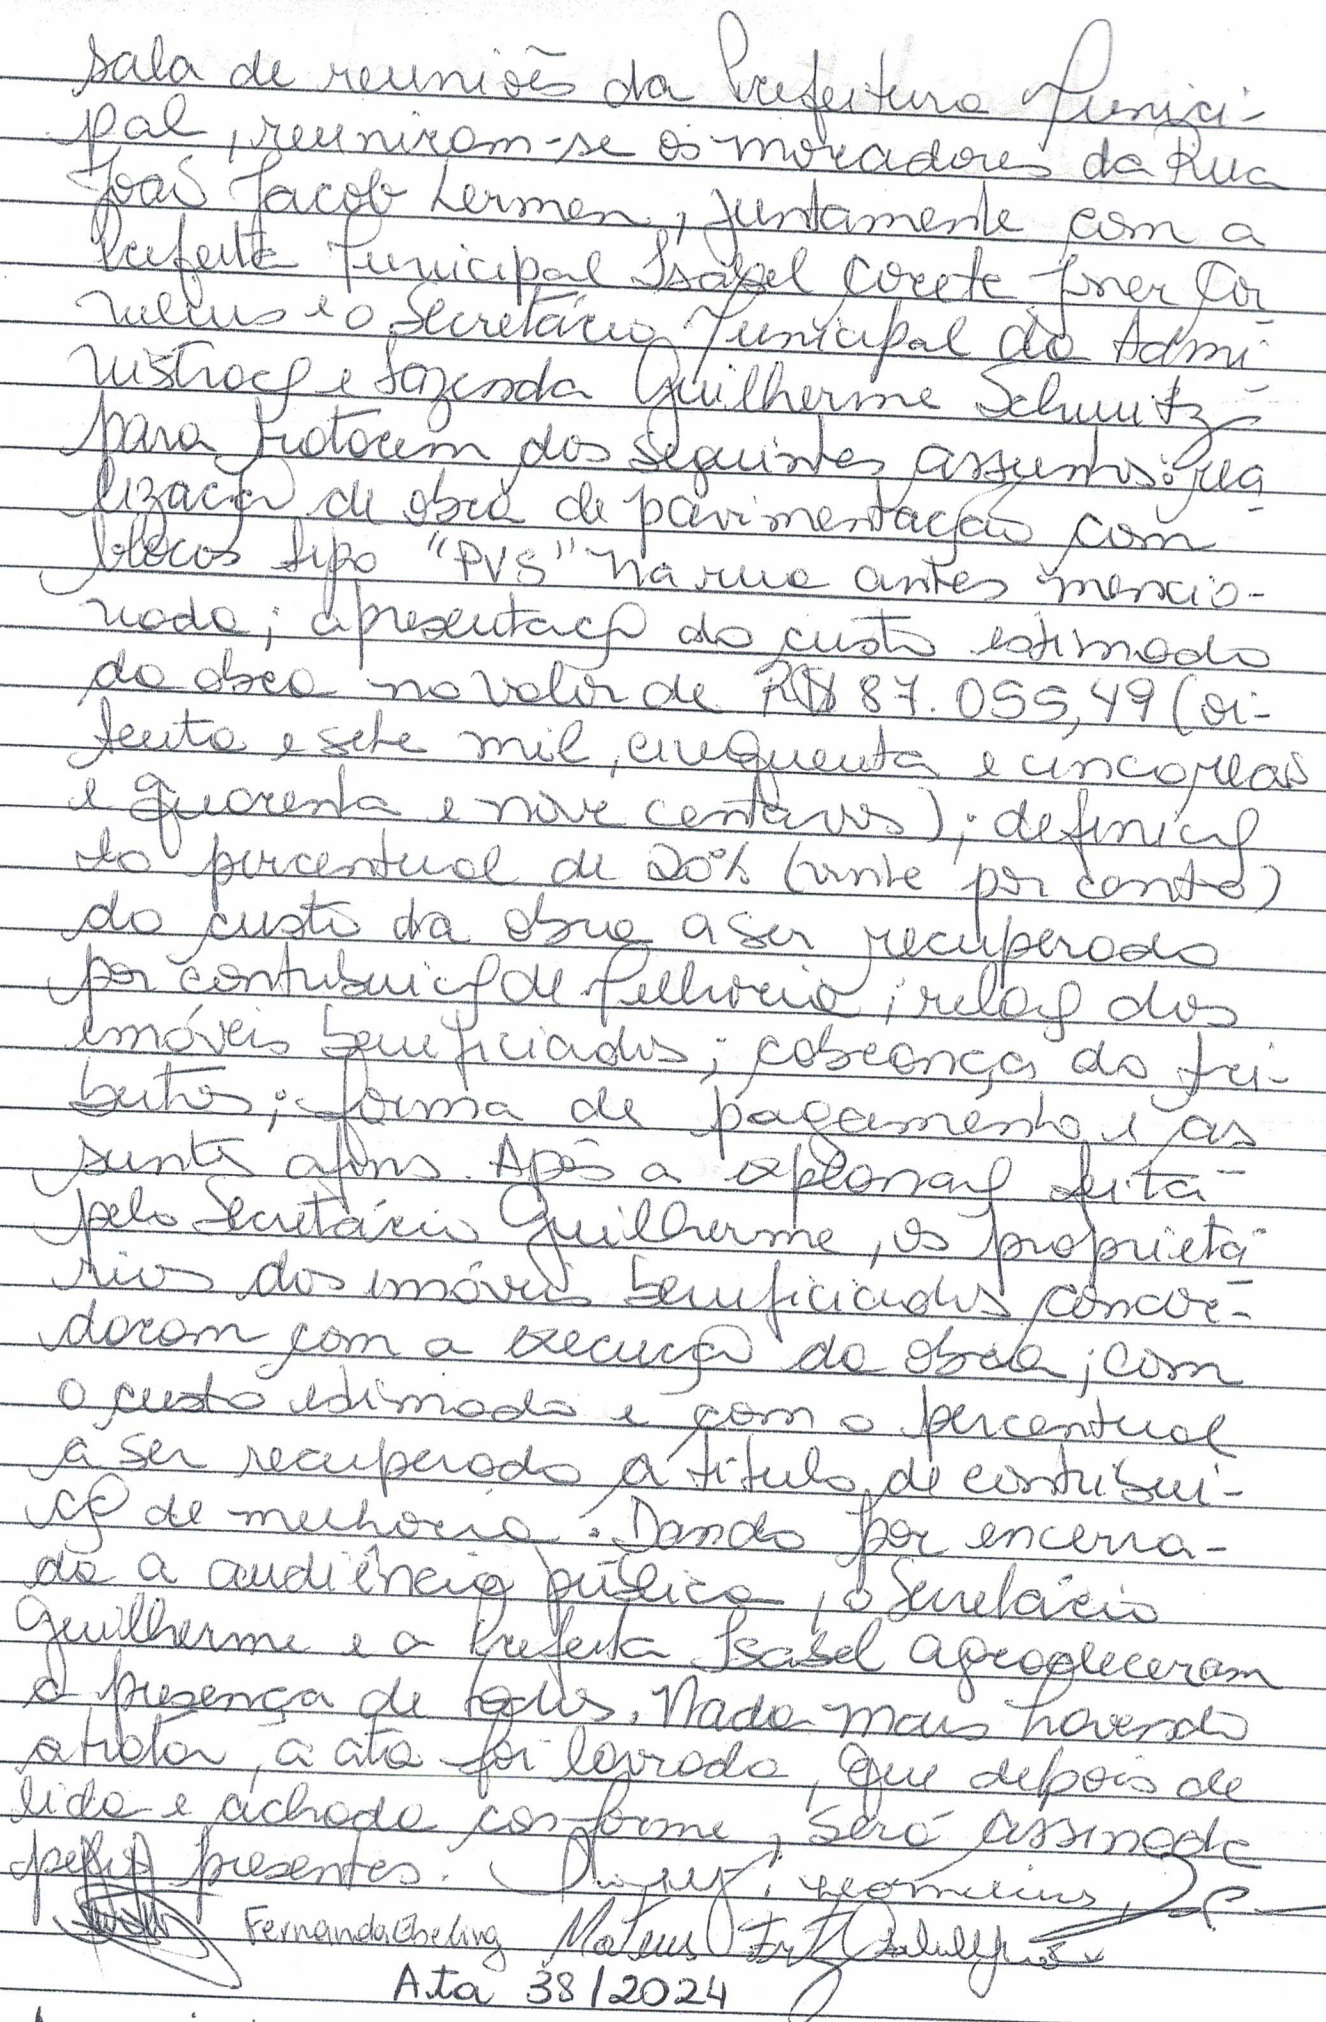 sala de reuniões da Prefeitura Munici-
pal, reuniram-se os moradores da Rua
João Jacob Lermen, juntamente com a
Prefeita Municipal Isabel Corete Joner Cor
nelius e o Secretário Municipal da Admi-
nistraçã e Fazenda Guilherme Schmitz
para tratarem dos seguintes assuntos: rea
lização de obra de pavimentação com
blocos tipo "PVS" na rua antes mencio-
nada; apresentaçã do custo estimado
da obra no valor de R$ 87.055,49 (oi-
tenta e sete mil, cinquenta e cinco reais
e quarenta e nove centavos); definiçã
do percentual de 20% (vinte por cento)
do custo da obra a ser recuperado
por contribuiçã de Melhoria; relaçã dos
imóveis beneficiados; cobrança do tri-
butos; forma de pagamento e as
suntos afins. Após a explanaçã feita
pelo Secretário Guilherme, os proprietá-
rios dos imóveis beneficiados concor-
daram com a execução da obra; com
o custo estimado e com o percentual
a ser recuperado a título de contribui-
çã de melhoria. Dando por encerra-
da a audiência pública, o Secretário
Guilherme e a Prefeita Isabel agradeceram
a presença de todos. Nada mais havendo
a tratar, a ata foi lavrada, que depois de
lida e achada conforme, será assinada
pelos presentes.
Fernanda Ebeling Mateus
Ata 38/2024